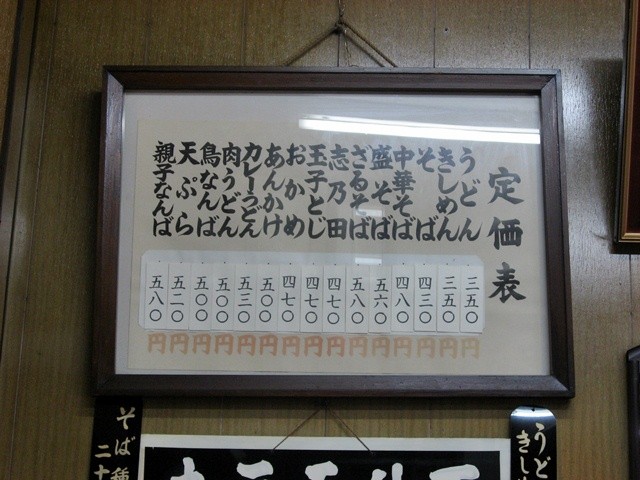 定価表
うどん 三五〇円
きしめん 三五〇円
そば 四三〇円
中華そば 四八〇円
盛そば 五六〇円
ざるそば 五八〇円
志乃田 四七〇円
玉子とじ 四七〇円
おかめ 四七〇円
あんかけ 五〇〇円
カレーうどん 五三〇円
肉うどん 五〇〇円
鳥なんば 五〇〇円
天ぷら 五二〇円
親子なんば 五八〇円
うど
きし
そば種
二十